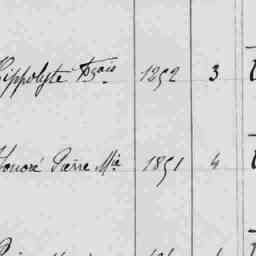 Hippolyte Fçois 1892 3
Honoré Pierre Mie 1891 4